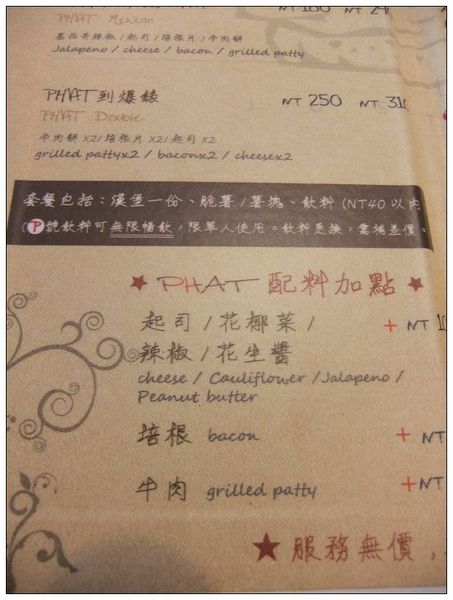 PHAT Mexican
墨西哥辣椒/起司/培根片/牛肉餅
Jalapeno / cheese / bacon / grilled patty
PHAT到爆錶 NT 250 NT 310
PHAT Double
牛肉餅X2/培根片X2/起司X2
grilled pattyx2 / baconx2 / cheesex2
套餐包括：漢堡一份、脆薯/薯塊、飲料(NT40以內
(P號飲料可無限暢飲，限單人使用。飲料更換，需補差價。
★ PHAT 配料加點 ★
起司/花椰菜/ + NT
辣椒/花生醬
cheese / Cauliflower / Jalapeno /
Peanut butter
培根 bacon + NT
牛肉 grilled patty + NT
★ 服務無價，